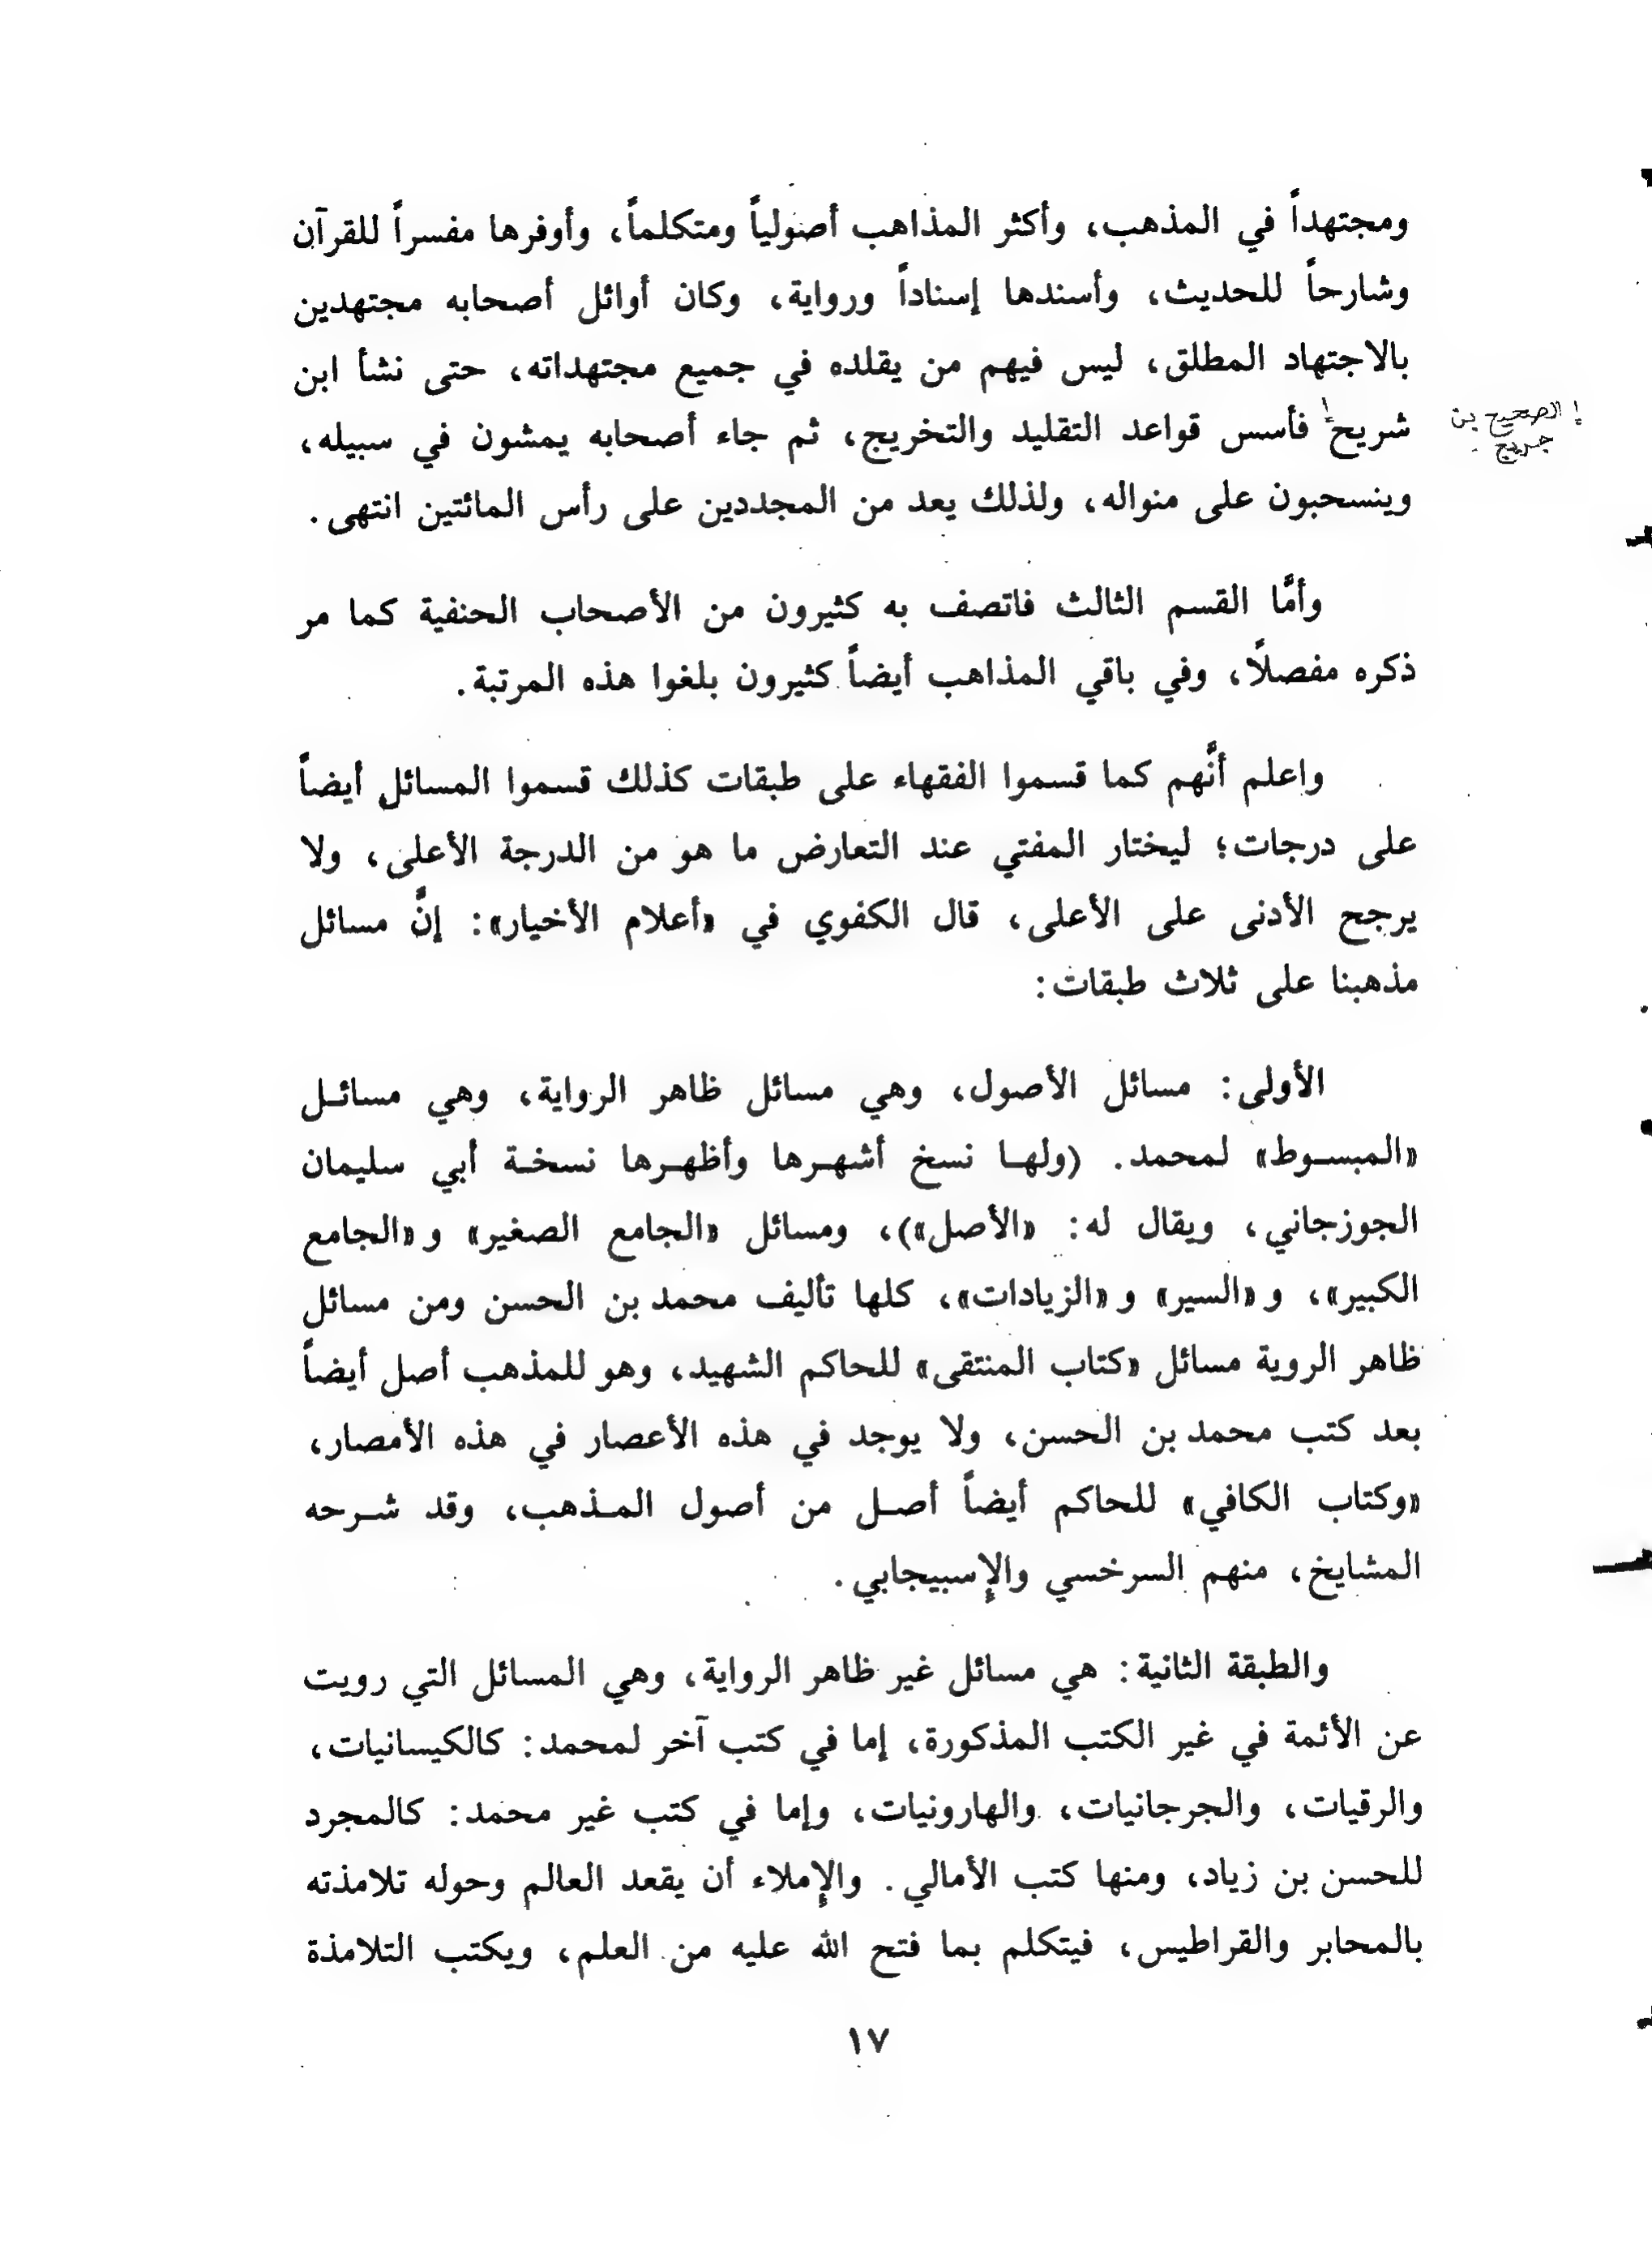 ومجتهداً في المذهب، وأكثر المذاهب أصولياً ومتكلماً، وأوفرها مفسراً للقرآن
وشارحاً للحديث، وأسندها إسناداً ورواية، وكان أوائل أصحابه مجتهدين
بالاجتهاد المطلق، ليس فيهم من يقلده في جميع مجتهداته، حتى نشأ ابن
شريح فأسس قواعد التقليد والتخريج، ثم جاء أصحابه يمشون في سبيله،
إ الصحيح بن
جريج
وينسحبون على منواله، ولذلك يعد من المجددين على رأس المائتين انتهى.
وأمَّا القسم الثالث فاتصف به كثيرون من الأصحاب الحنفية كما مر
ذكره مفصلًا، وفي باقي المذاهب أيضاً كثيرون بلغوا هذه المرتبة.
واعلم أنَّهم كما قسموا الفقهاء على طبقات كذلك قسموا المسائل أيضاً
على درجات؛ ليختار المفتي عند التعارض ما هو من الدرجة الأعلى، ولا
يرجح الأدنى على الأعلى، قال الكفوي في «أعلام الأخيار»: إنَّ مسائل
مذهبنا على ثلاث طبقات:
الأولى: مسائل الأصول، وهي مسائل ظاهر الرواية، وهي مسائـل
«المبسـوط» لمحمد. (ولهـا نسخ أشهـرها وأظهـرها نسخـة أبي سليمان
الجوزجاني، ويقال له: «الأصل»)، ومسائل «الجامع الصغير» و«الجامع
الكبير»، و«السير» و«الزيادات»، كلها تأليف محمد بن الحسن ومن مسائل
ظاهر الروية مسائل «كتاب المنتقى» للحاكم الشهيد، وهو للمذهب أصل أيضاً
بعد كتب محمد بن الحسن، ولا يوجد في هذه الأعصار في هذه الأمصار،
«وكتاب الكافي» للحاكم أيضاً أصـل من أصول المـذهب، وقد شـرحه
المشايخ، منهم السرخسي والإسبيجابي.
والطبقة الثانية: هي مسائل غير ظاهر الرواية، وهي المسائل التي رويت
عن الأئمة في غير الكتب المذكورة، إما في كتب آخر لمحمد: كالكيسانيات،
والرقيات، والجرجانيات، والهارونيات، وإما في كتب غير محمد: كالمجرد
للحسن بن زياد، ومنها كتب الأمالي. والإملاء أن يقعد العالم وحوله تلامذته
بالمحابر والقراطيس، فيتكلم بما فتح الله عليه من العلم، ويكتب التلامذة
١٧